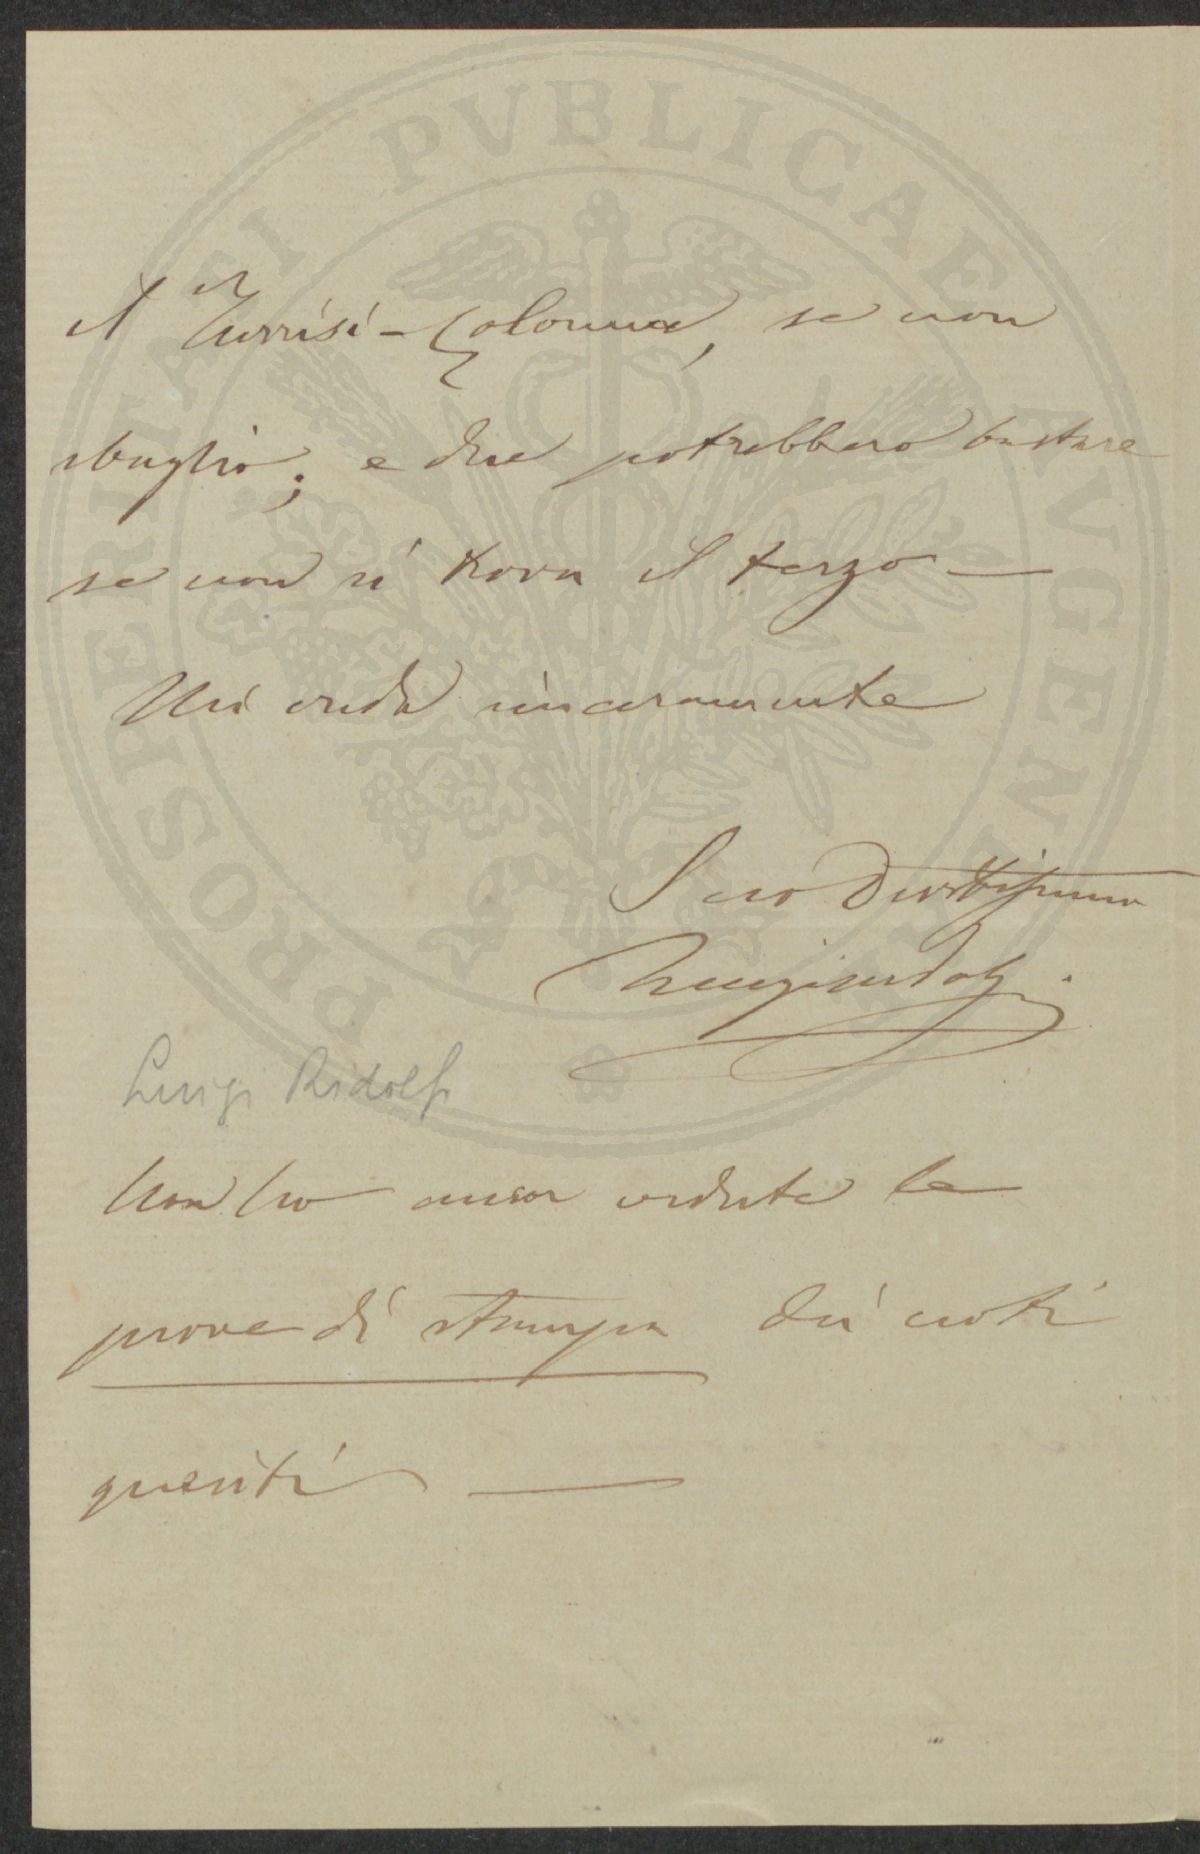 il Turrisi-Colonna, se non
sbaglio; e due potrebbero bastare
se non si trova il terzo —
Mi creda sinceramente
Suo Devotissimo
Luigi Ridolfi
Luigi Ridolfi
Non ho ancor vedute le
prove di stampa dei noti
quesiti —
PROSPERITATI PVBLICAE AVGENDAE